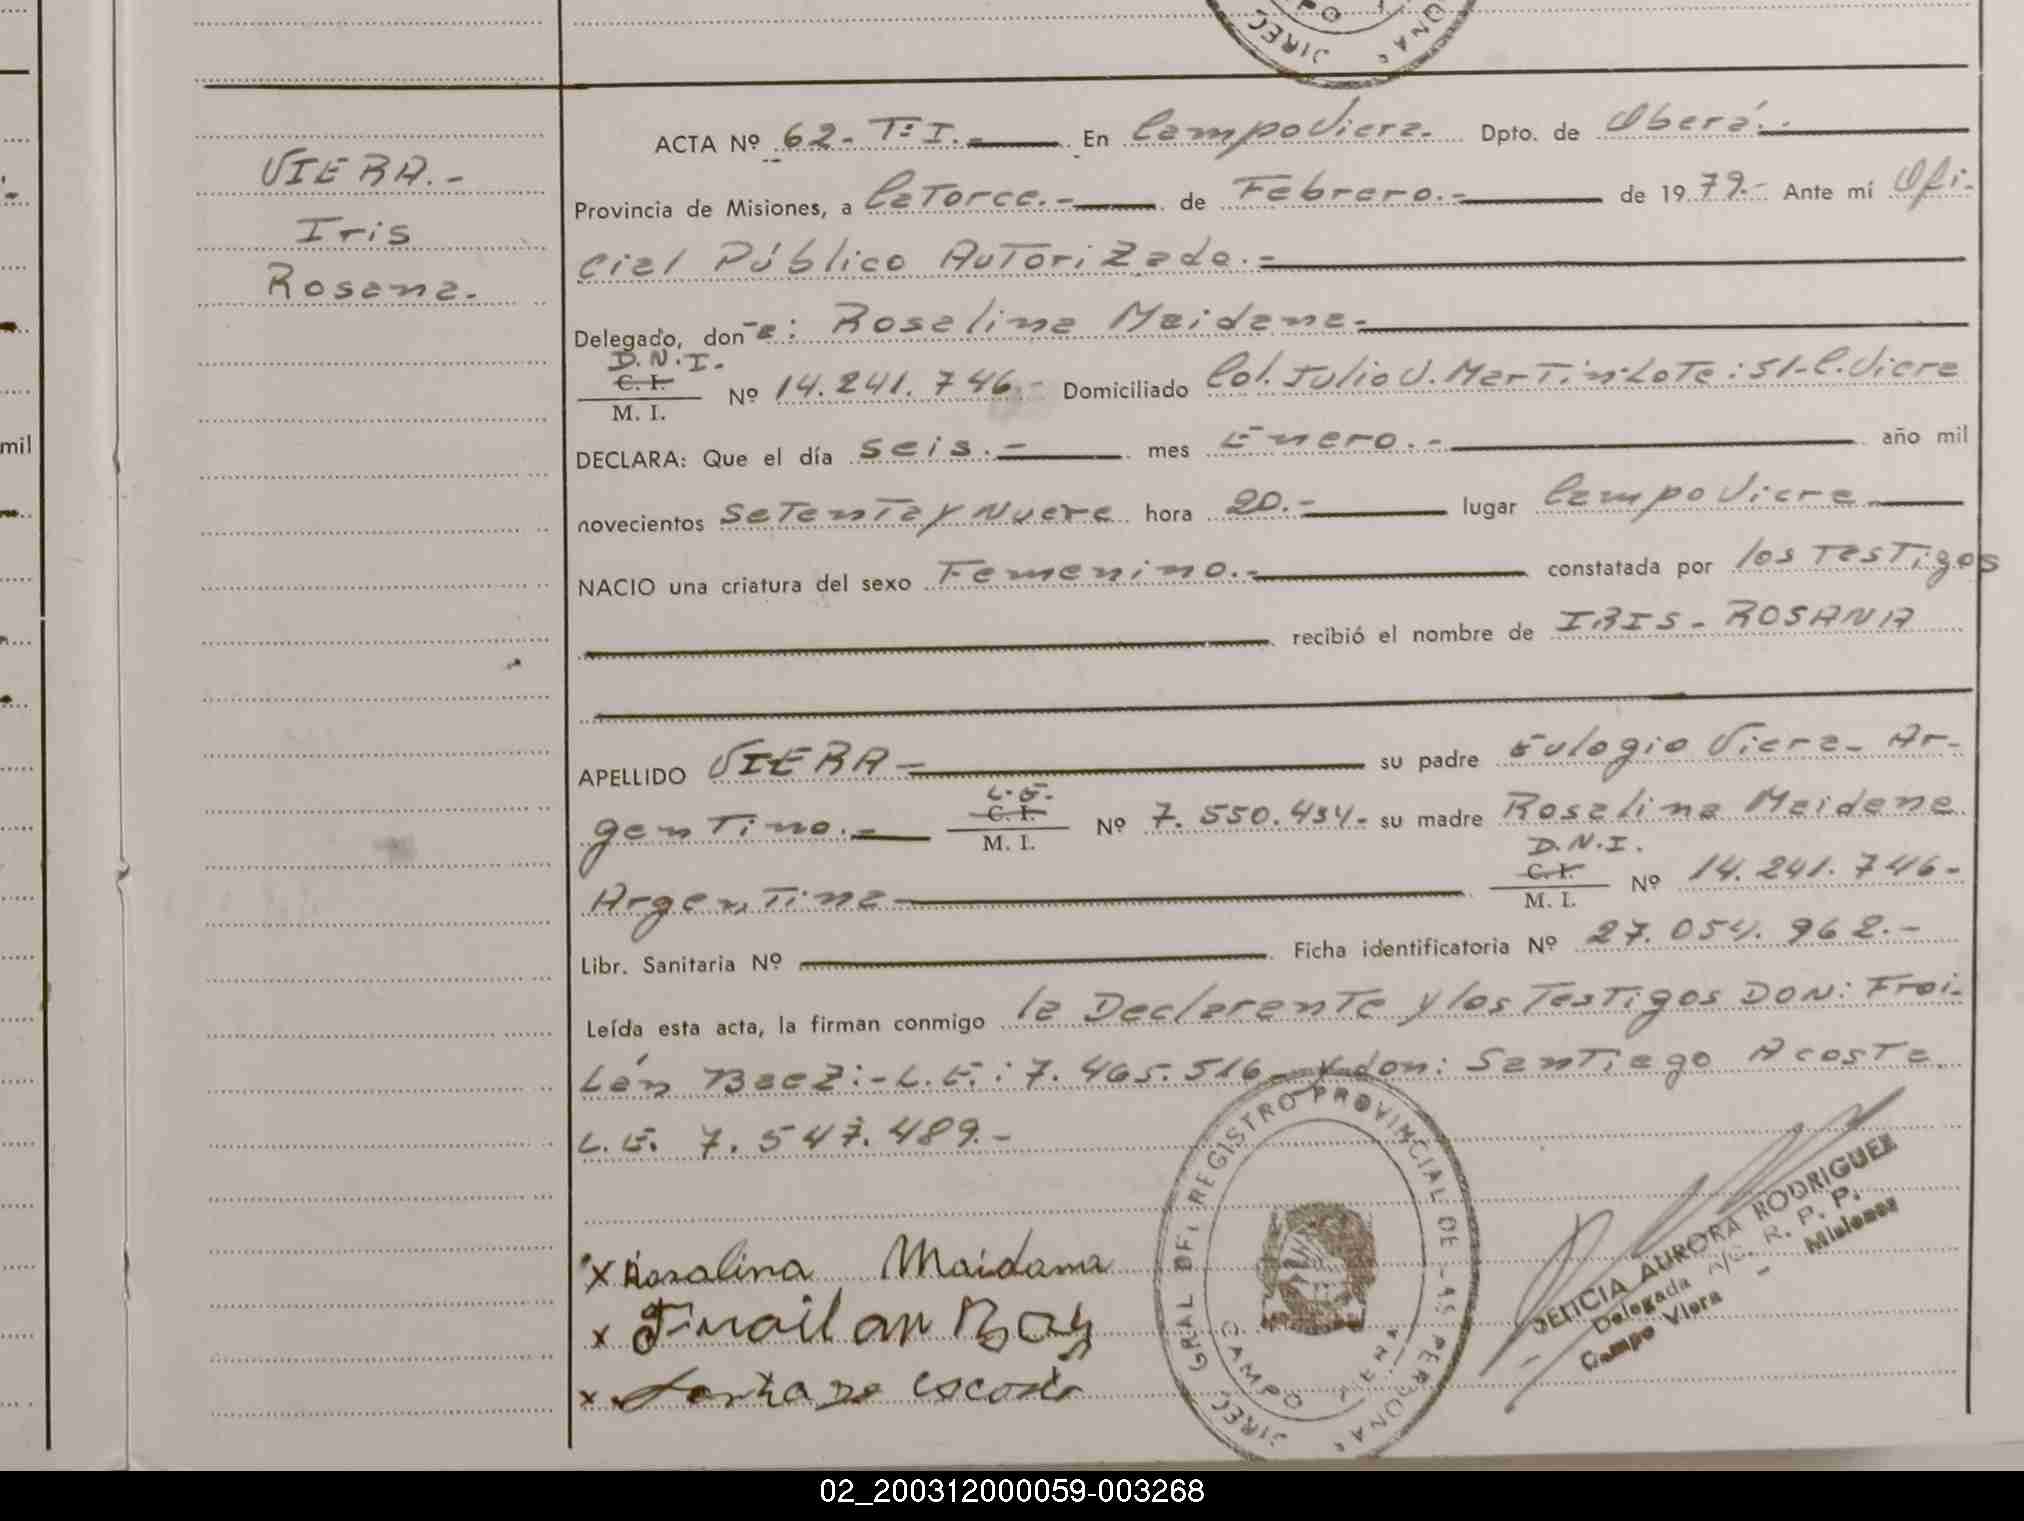 VIERA.-
Iris
Rosana.
mil
ACTA Nº 62- Tº I.- En Campo Viera. Dpto. de Oberá.-
Provincia de Misiones, a Catorce.- de Febrero.- de 1979.- Ante mí Ofi-
cial Público Autorizado.-
Delegado, don -a: Rosalina Maidana-
D.N.I.
C. I.
M. I. Nº 14.241.746.- Domiciliado Col. Julio U. Martin-Lote: 51-C. Viera
DECLARA: Que el día seis.- mes Enero.- año mil
novecientos Setenta y Nueve hora 20.- lugar Campo Viera
NACIO una criatura del sexo Femenino.- constatada por los Testigos
recibió el nombre de IRIS - ROSANA
APELLIDO VIERA- su padre Eulogio Viera- Ar-
gentino.- L.E.
C. I.
M. I. Nº 7.550.434- su madre Rosalina Maidana
Argentina D.N.I.
C. I.
M. I. Nº 14.241.746-
Libr. Sanitaria Nº Ficha identificatoria Nº 27.054.962.-
Leída esta acta, la firman conmigo la Declarante y los Testigos DON: Froi-
lán Baez:-L.E.: 7.465.516- y don: Santiago Acosta
L.E. 7.547.489.-
x Rosalina Maidana
x Froilan Baz
x
DIREC. GRAL DEL REGISTRO PROVINCIAL DE LAS PERSONAS
CAMPO VIERA
DELICIA AURORA RODRIGUEZ
Delegada A/C. R. P. P.
Campo Viera - Misiones
02_200312000059-003268